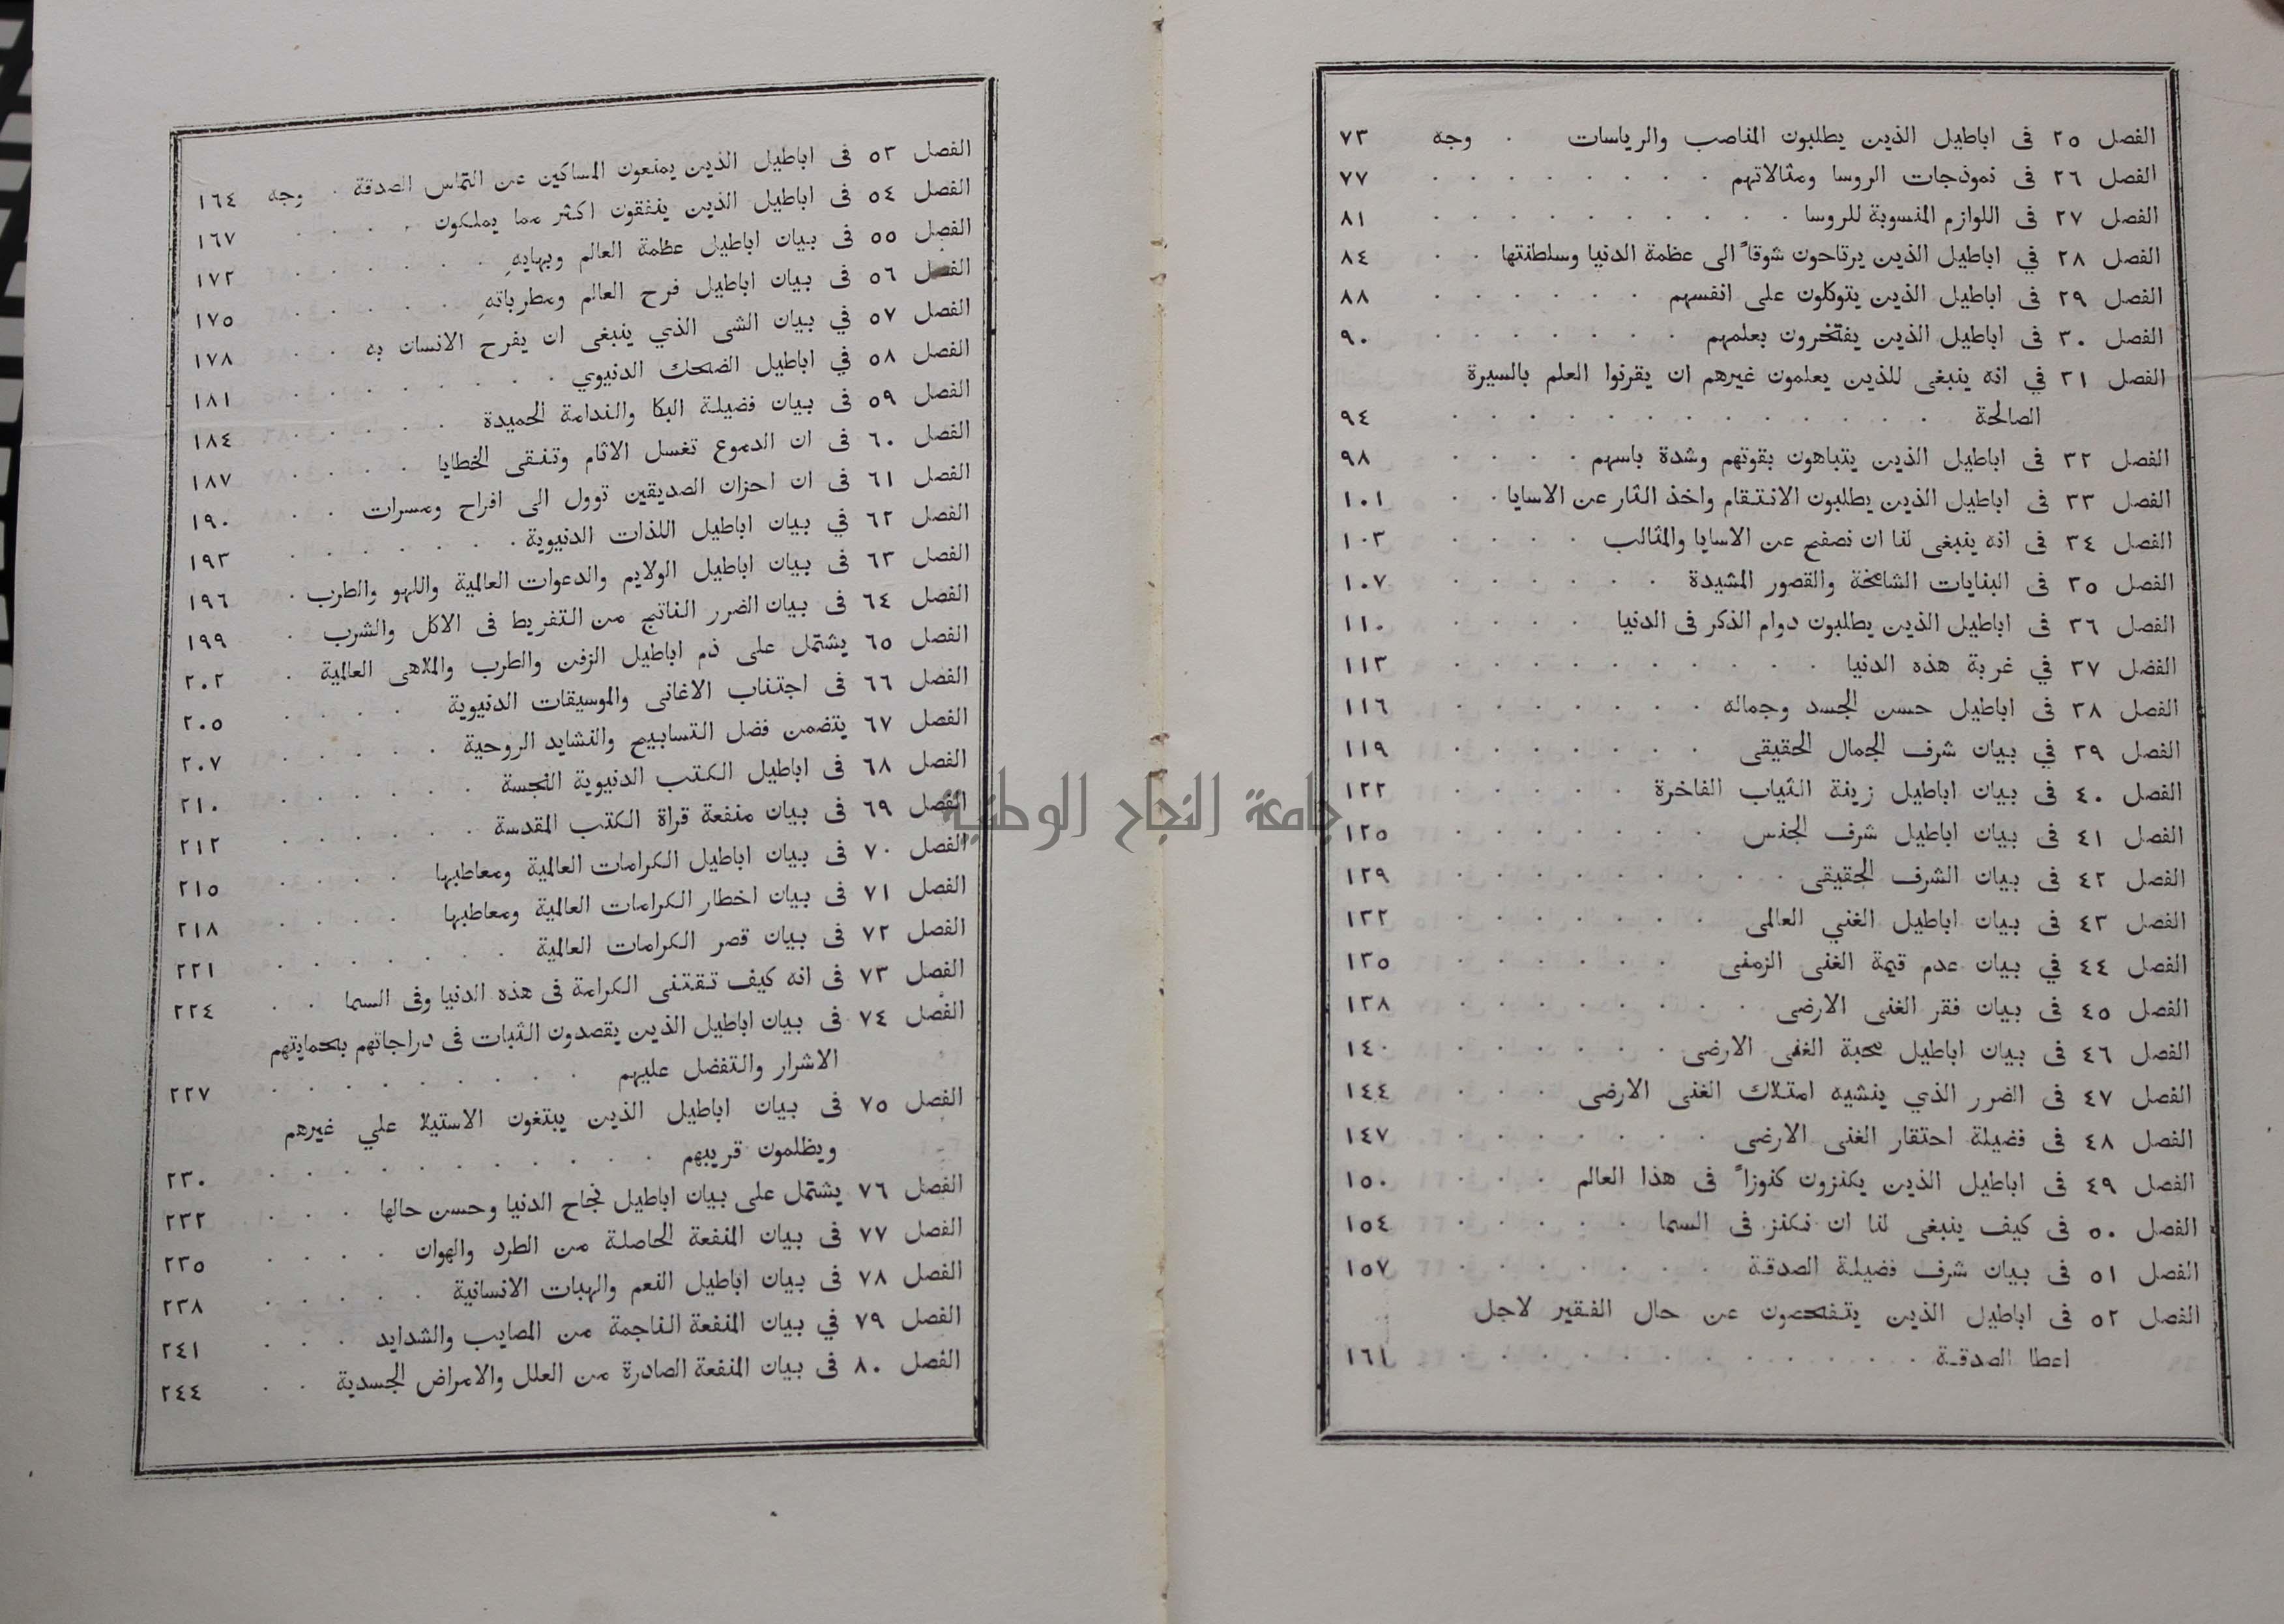 الفصل ٢٥ فى اباطيل الذين يطلبون المناصب والرياسات . وجه ٧٣
الفصل ٢٦ فى نموذجات الروسا ومثالاتهم . . . . . . . . ٧٧
الفصل ٢٧ فى اللوازم المنسوبة للروسا . . . . . . . . . ٨١
الفصل ٢٨ في اباطيل الذين يرتاحون شوقاً الى عظمة الدنيا وسلطنتها . . ٨٤
الفصل ٢٩ فى اباطيل الذين يتوكلون على انفسهم . . . . . . ٨٨
الفصل ٣٠ فى اباطيل الذين يفتخرون بعلمهم . . . . . . . ٩٠
الفصل ٣١ في انه ينبغى للذين يعلمون غيرهم ان يقرنوا العلم بالسيرة
الصالحة . . . . . . . . . . . . . ٩٤
الفصل ٣٢ فى اباطيل الذين يتباهون بقوتهم وشدة باسهم . . . . ٩٨
الفصل ٣٣ فى اباطيل الذين يطلبون الانتقام واخذ الثار عن الاسايا . . ١٠١
الفصل ٣٤ فى انه ينبغى لنا ان نصفح عن الاسايا والمثالب . . . . ١٠٣
الفصل ٣٥ فى البنايات الشامخة والقصور المشيدة . . . . . . ١٠٧
الفصل ٣٦ فى اباطيل الذين يطلبون دوام الذكر فى الدنيا . . . . ١١٠
الفصل ٣٧ في غربة هذه الدنيا . . . . . . . . . . ١١٣
الفصل ٣٨ فى اباطيل حسن الجسد وجماله . . . . . . . ١١٦
الفصل ٣٩ في بيان شرف الجمال الحقيقى . . . . . . . ١١٩
الفصل ٤٠ فى بيان اباطيل زينة الثياب الفاخرة . . . . . ١٢٢
الفصل ٤١ فى بيان اباطيل شرف الجنس . . . . . . . ١٢٥
الفصل ٤٢ فى بيان الشرف الحقيقى . . . . . . . . . ١٢٩
الفصل ٤٣ فى بيان اباطيل الغني العالمى . . . . . . . ١٣٢
الفصل ٤٤ في بيان عدم قيمة الغنى الزمنى . . . . . . ١٣٥
الفصل ٤٥ فى بيان فقر الغنى الارضى . . . . . . . . ١٣٨
الفصل ٤٦ فى بيان اباطيل محبة الغنى الارضى . . . . . . ١٤٠
الفصل ٤٧ فى الضرر الذي ينشيه امتلاك الغنى الارضى . . . . ١٤٤
الفصل ٤٨ فى فضيلة احتقار الغنى الارضى . . . . . . . ١٤٧
الفصل ٤٩ فى اباطيل الذين يكنزون كنوزاً فى هذا العالم . . . . ١٥٠
الفصل ٥٠ فى كيف ينبغى لنا ان نكنز فى السما . . . . . ١٥٤
الفصل ٥١ فى بيان شرف فضيلة الصدقة . . . . . . . ١٥٧
الفصل ٥٢ فى اباطيل الذين يتفحصون عن حال الفقير لاجل
اعطا الصدقة . . . . . . . . . . . . ١٦١
الفصل ٥٣ فى اباطيل الذين يمنعون المساكين عن التماس الصدقة . وجه ١٦٤
الفصل ٥٤ فى اباطيل الذين ينفقون اكثر مما يملكون . . . . ١٦٧
الفصل ٥٥ فى بيان اباطيل عظمة العالم وبهايهِ . . . . . . ١٧٢
الفصل ٥٦ فى بيان اباطيل فرح العالم ومطرباتهِ . . . . . ١٧٥
الفصل ٥٧ في بيان الشى الذي ينبغى ان يفرح الانسان به . . . ١٧٨
الفصل ٥٨ في اباطيل الضحك الدنيوي . . . . . . . . ١٨١
الفصل ٥٩ فى بيان فضيلة البكا والندامة الحميدة . . . . . ١٨٤
الفصل ٦٠ فى ان الدموع تغسل الاثام وتنقى الخطايا . . . . ١٨٧
الفصل ٦١ فى ان احزان الصديقين توول الى افراح ومسرات . . . ١٩٠
الفصل ٦٢ في بيان اباطيل اللذات الدنيوية . . . . . . . ١٩٣
الفصل ٦٣ فى بيان اباطيل الولايم والدعوات العالمية واللهو والطرب . ١٩٦
الفصل ٦٤ فى بيان الضرر الناتج من التفريط فى الاكل والشرب . ١٩٩
الفصل ٦٥ يشتمل على ذم اباطيل الزفن والطرب والملاهى العالمية . ٢٠٢
الفصل ٦٦ فى اجتناب الاغانى والموسيقات الدنيوية . . . . ٢٠٥
الفصل ٦٧ يتضمن فضل التسابيح والنشايد الروحية . . . . . ٢٠٧
الفصل ٦٨ فى اباطيل الكتب الدنيوية النجسة . . . . . . ٢١٠
الفصل ٦٩ فى بيان منفعة قراة الكتب المقدسة . . . . . . ٢١٢
الفصل ٧٠ فى بيان اباطيل الكرامات العالمية ومعاطبها . . . . ٢١٥
الفصل ٧١ فى بيان اخطار الكرامات العالمية ومعاطبها . . . . ٢١٨
الفصل ٧٢ فى بيان قصر الكرامات العالمية . . . . . . . ٢٢١
الفصل ٧٣ فى انه كيف تقتنى الكرامة فى هذه الدنيا وفى السما . . ٢٢٤
الفصل ٧٤ فى بيان اباطيل الذين يقصدون الثبات فى دراجاتهم بحمايتهم
الاشرار والتفضل عليهم . . . . . . . . . ٢٢٧
الفصل ٧٥ فى بيان اباطيل الذين يبتغون الاستيلا علي غيرهم
ويظلمون قريبهم . . . . . . . . . . ٢٣٠
الفصل ٧٦ يشتمل على بيان اباطيل نجاح الدنيا وحسن حالها . . . ٢٣٢
الفصل ٧٧ فى بيان المنفعة الحاصلة من الطرد والهوان . . . . ٢٣٥
الفصل ٧٨ فى بيان اباطيل النعم والهبات الانسانية . . . . . ٢٣٨
الفصل ٧٩ في بيان المنفعة الناجمة من المصايب والشدايد . . . ٢٤١
الفصل ٨٠ فى بيان المنفعة الصادرة من العلل والامراض الجسدية . . ٢٤٤
جامعة النجاح الوطنية